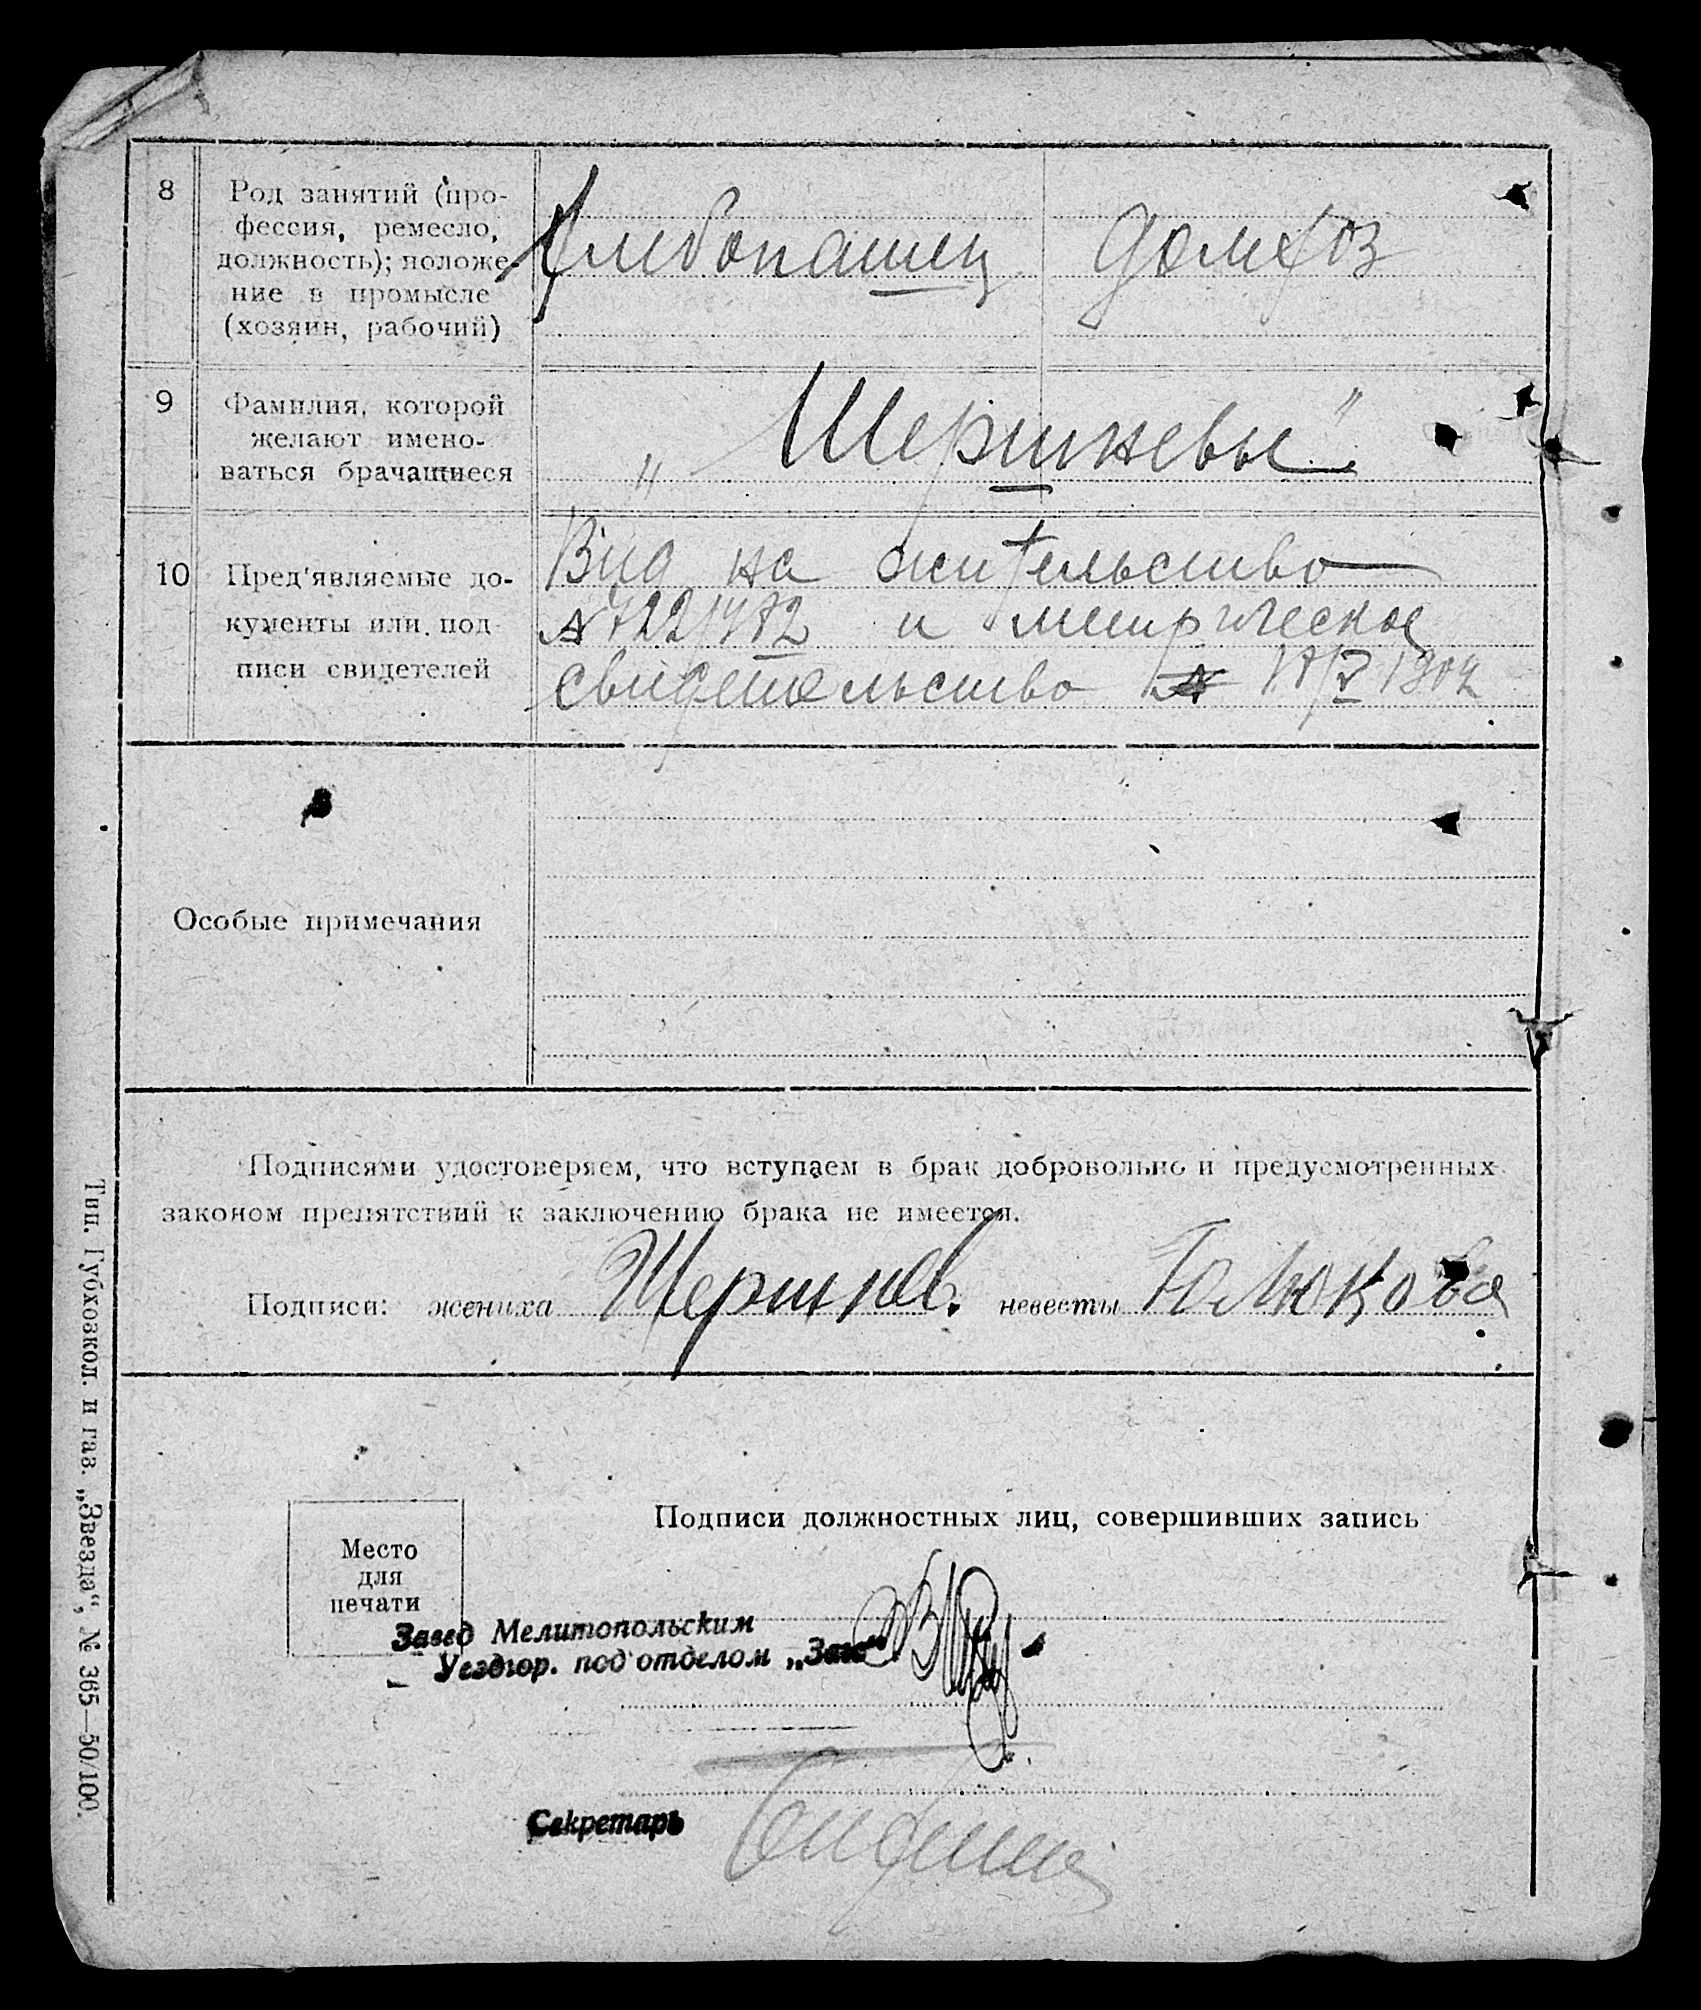 8 Род занятий (про-
фессия, ремесло,
должность); положе-
ние в промысле
(хозяин, рабочий)
Хлибопашец домхоз
9 Фамилия, которой
желают имено-
ваться брачащиеся
„Шершневы"
10 Пред'являемые до-
кументы или под-
писи свидетелей
Вид на жительство
и метрическое
свидетельство
Особые примечания
Подписями удостоверяем, что вступаем в брак добровольно и предусмотренных
законом препятствий к заключению брака не имеется.
Подписи: жениха Шершнев. невесты
Подписи должностных лиц, совершивших запись
Место
для
печати
Завед Мелитопольским
Уездгор. под'отделом „Загс"
Секретарь
Тип. Губхозкол. и газ. „Звезда", № 365—50/100.